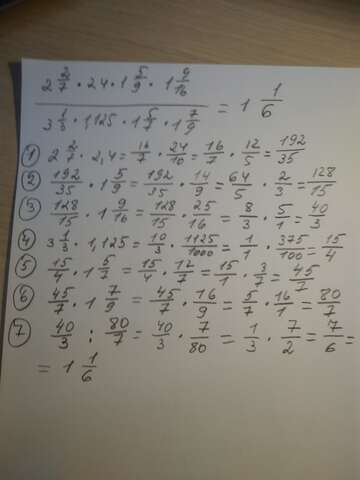 2 2/7 · 24 · 1 5/9 · 1 9/16
3 1/3 · 1,125 · 1 5/7 · 1 7/9 = 1 1/6
1) 2 2/7 · 2,4 = 16/7 · 24/10 = 16/7 · 12/5 = 192/35
2) 192/35 · 1 5/9 = 192/35 · 14/9 = 64/5 · 2/3 = 128/15
3) 128/15 · 1 9/16 = 128/15 · 25/16 = 8/3 · 5/1 = 40/3
4) 3 1/3 · 1,125 = 10/3 · 1125/1000 = 1/1 · 375/100 = 15/4
5) 15/4 · 1 5/7 = 15/4 · 12/7 = 15/1 · 3/7 = 45/7
6) 45/7 · 1 7/9 = 45/7 · 16/9 = 5/7 · 16/1 = 80/7
7) 40/3 : 80/7 = 40/3 · 7/80 = 1/3 · 7/2 = 7/6 =
= 1 1/6